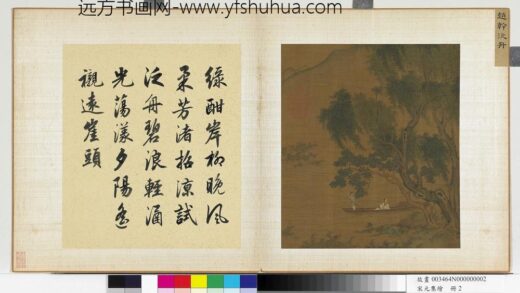 远方书画网-www.yfshuhua.com
趙幹泛舟
綠酣岸柳晚風
柔芳渚招涼試
泛舟碧浪輕涵
光蕩漾夕陽遙
襯遠崖頭
故畫 003464N000000002
宋元集繪 冊 2